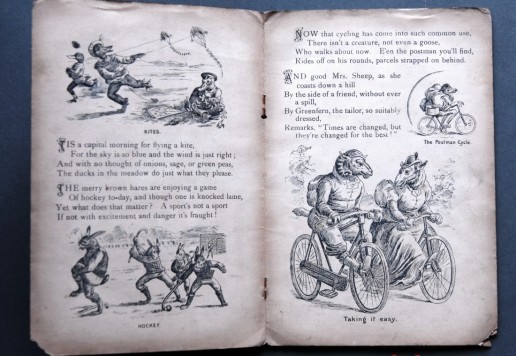 KITES.
'TIS a capital morning for flying a kite,
For the sky is so blue and the wind is just right;
And with no thought of onions, sage, or green peas,
The ducks in the meadow do just what they please.
THE merry brown hares are enjoying a game
Of hockey to-day, and though one is knocked lame,
Yet what does that matter? A sport's not a sport
If not with excitement and danger it's fraught!
HOCKEY.
NOW that cycling has come into such common use,
There isn't a creature, not even a goose,
Who walks about now. E'en the postman you'll find,
Rides off on his rounds, parcels strapped on behind.
AND good Mrs. Sheep, as she
coasts down a hill
By the side of a friend, without ever
a spill,
By Greenfern, the tailor, so suitably
dressed,
Remarks, "Times are changed, but
they're changed for the best!"
The Postman Cycle.
Taking it easy.